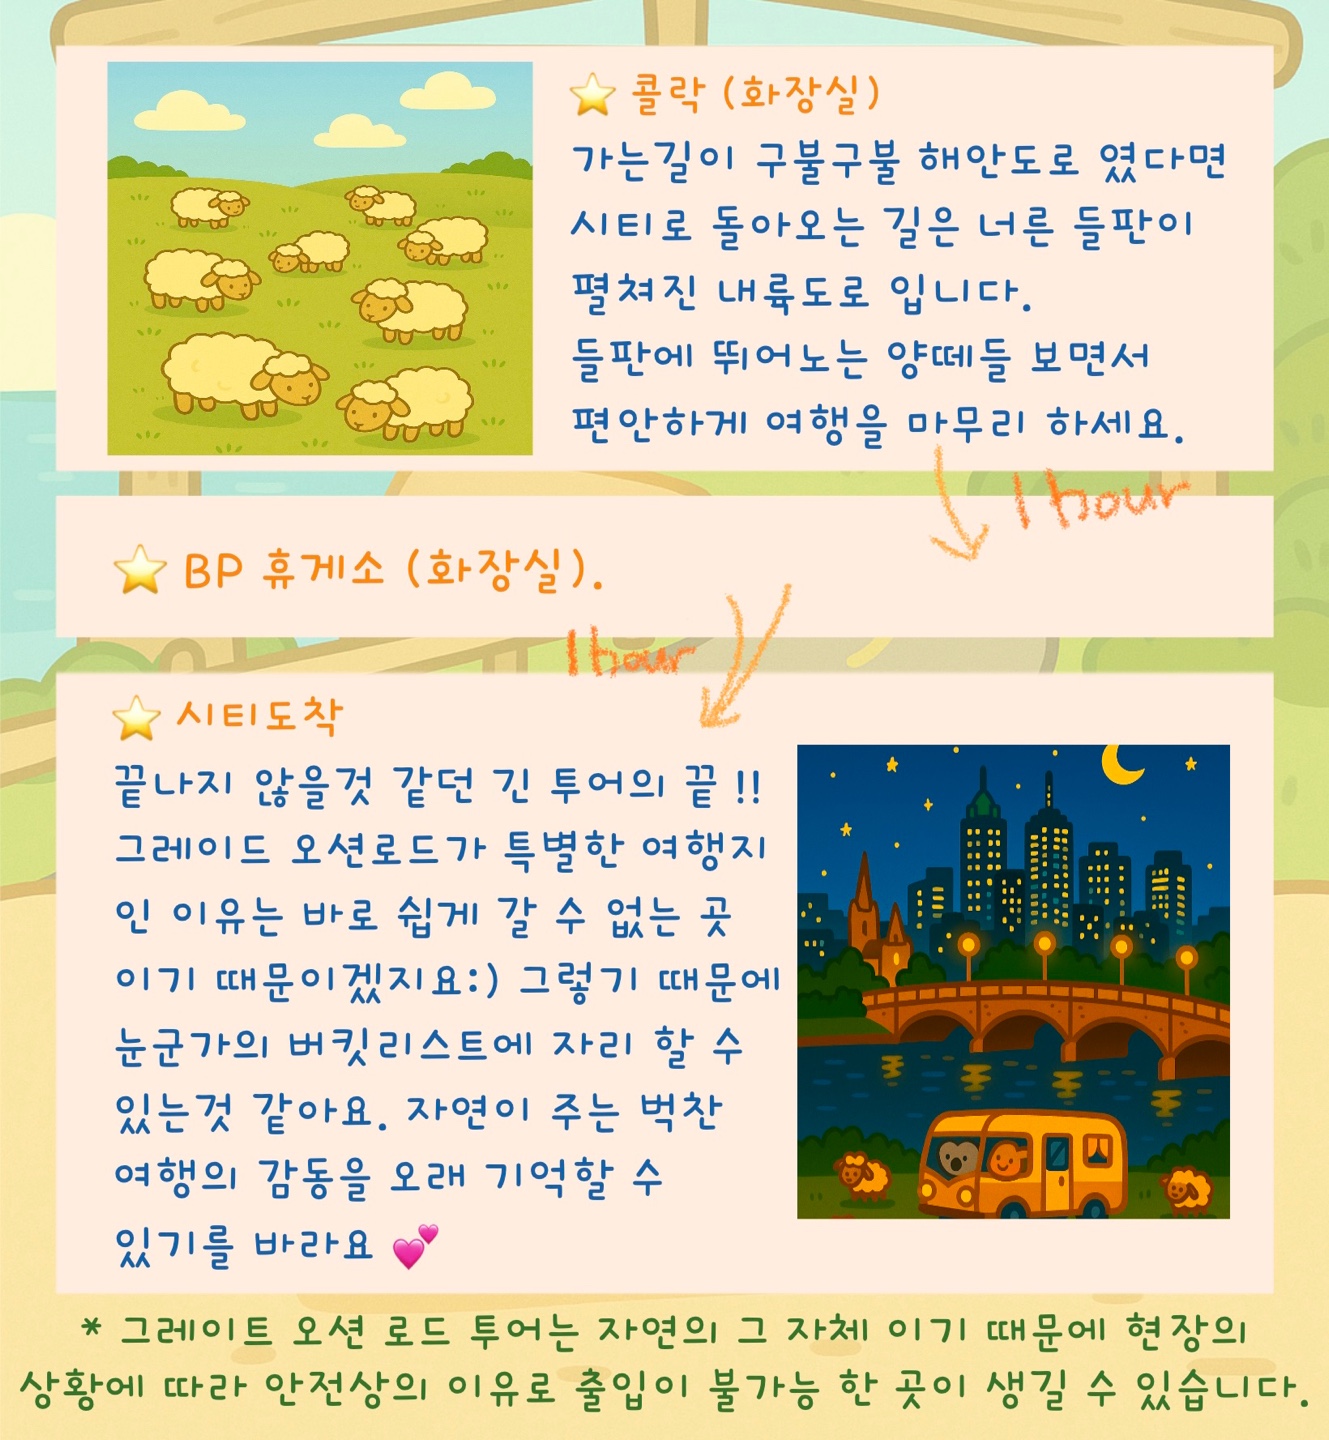 콜락 (화장실)
가는길이 구불구불 해안도로 였다면
시티로 돌아오는 길은 너른 들판이
펼쳐진 내륙도로 입니다.
들판에 뛰어노는 양떼들 보면서
편안하게 여행을 마무리 하세요.
1 hour
BP 휴게소 (화장실).
1 hour
시티도착
끝나지 않을것 같던 긴 투어의 끝 !!
그레이드 오션로드가 특별한 여행지
인 이유는 바로 쉽게 갈 수 없는 곳
이기 때문이겠지요:) 그렇기 때문에
눈군가의 버킷리스트에 자리 할 수
있는것 같아요. 자연이 주는 벅찬
여행의 감동을 오래 기억할 수
있기를 바라요 💕
* 그레이트 오션 로드 투어는 자연의 그 자체 이기 때문에 현장의
상황에 따라 안전상의 이유로 출입이 불가능 한 곳이 생길 수 있습니다.